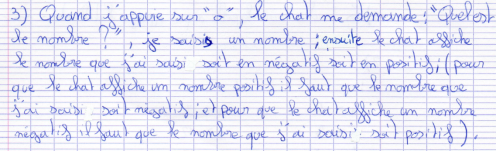 3) Quand j'appuie sur "o", le chat me demande; "Quel est
le nombre ?", je saisis un nombre ; ensuite le chat affiche
le nombre que j'ai saisi soit en négatif soit en positif; (pour
que le chat affiche un nombre positif il faut que le nombre que
j'ai saisi soit négatif ; et pour que le chat affiche un nombre
négatif il faut que le nombre que j'ai saisi soit positif).